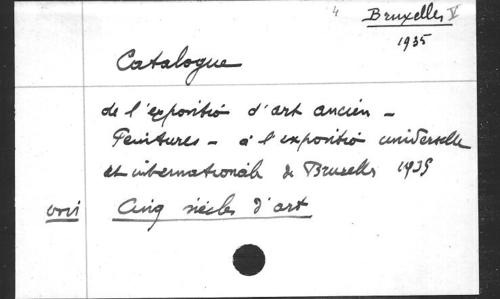 4 Bruxelles V
1935
Catalogue
de l'expositiõ d'art ancien -
Peintures - à l'expositiõ universelle
et internationale de Bruxelles 1935
voir Cinq siècles d'art